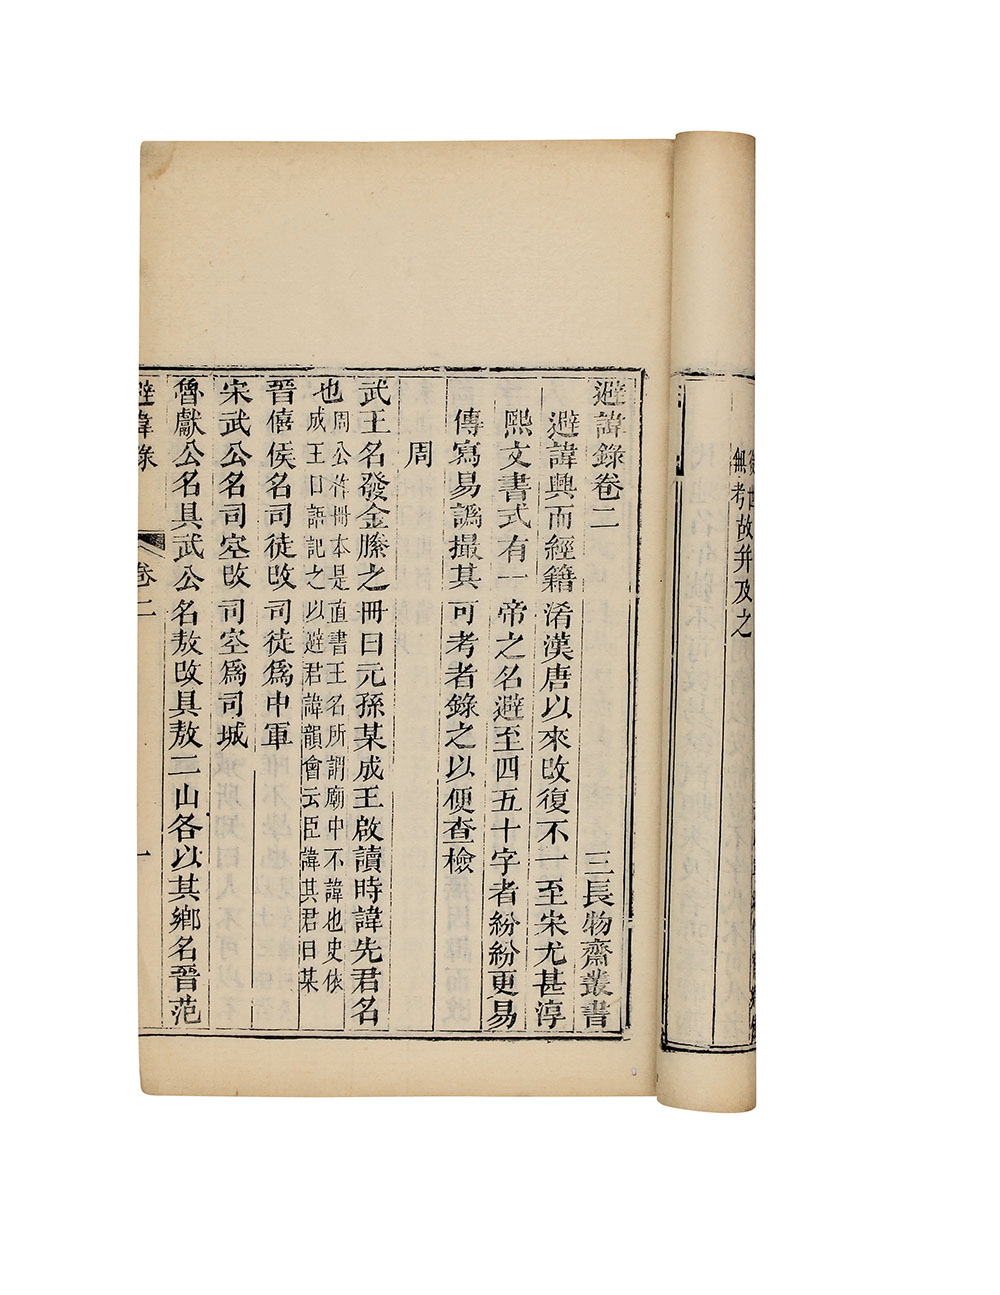 無考故并及之
避諱錄卷二 三長物齋叢書
避諱興而經籍淆漢唐以來改復不一至宋尤甚淳
熙文書式有一帝之名避至四五十字者紛紛更易
傳寫易譌撮其可考者錄之以便查檢
周
武王名發金縢之冊曰元孫某成王啟讀時諱先君名
也
周公作冊本是直書王名所謂廟中不諱也史依
成王口語記之以避君諱韻會云臣諱其君曰某
晉僖侯名司徒改司徒爲中軍
宋武公名司空改司空爲司城
魯獻公名具武公名敖改具敖二山各以其鄉名晉范
避諱錄 卷二 一